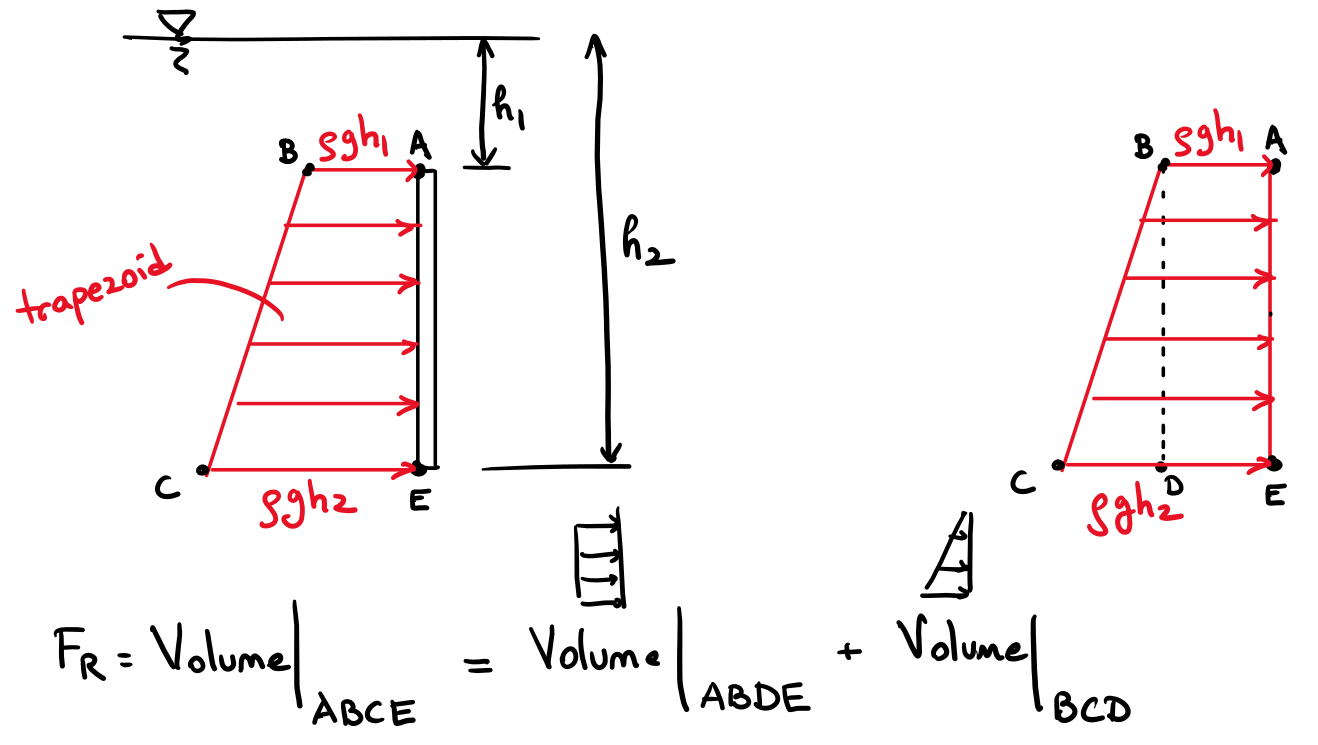 h₁
B ρgh₁ A
h₂
trapezoid
C ρgh₂ E
B ρgh₁ A
C D E
ρgh₂
F_R = Volume|ABCE = Volume|ABDE + Volume|BCD